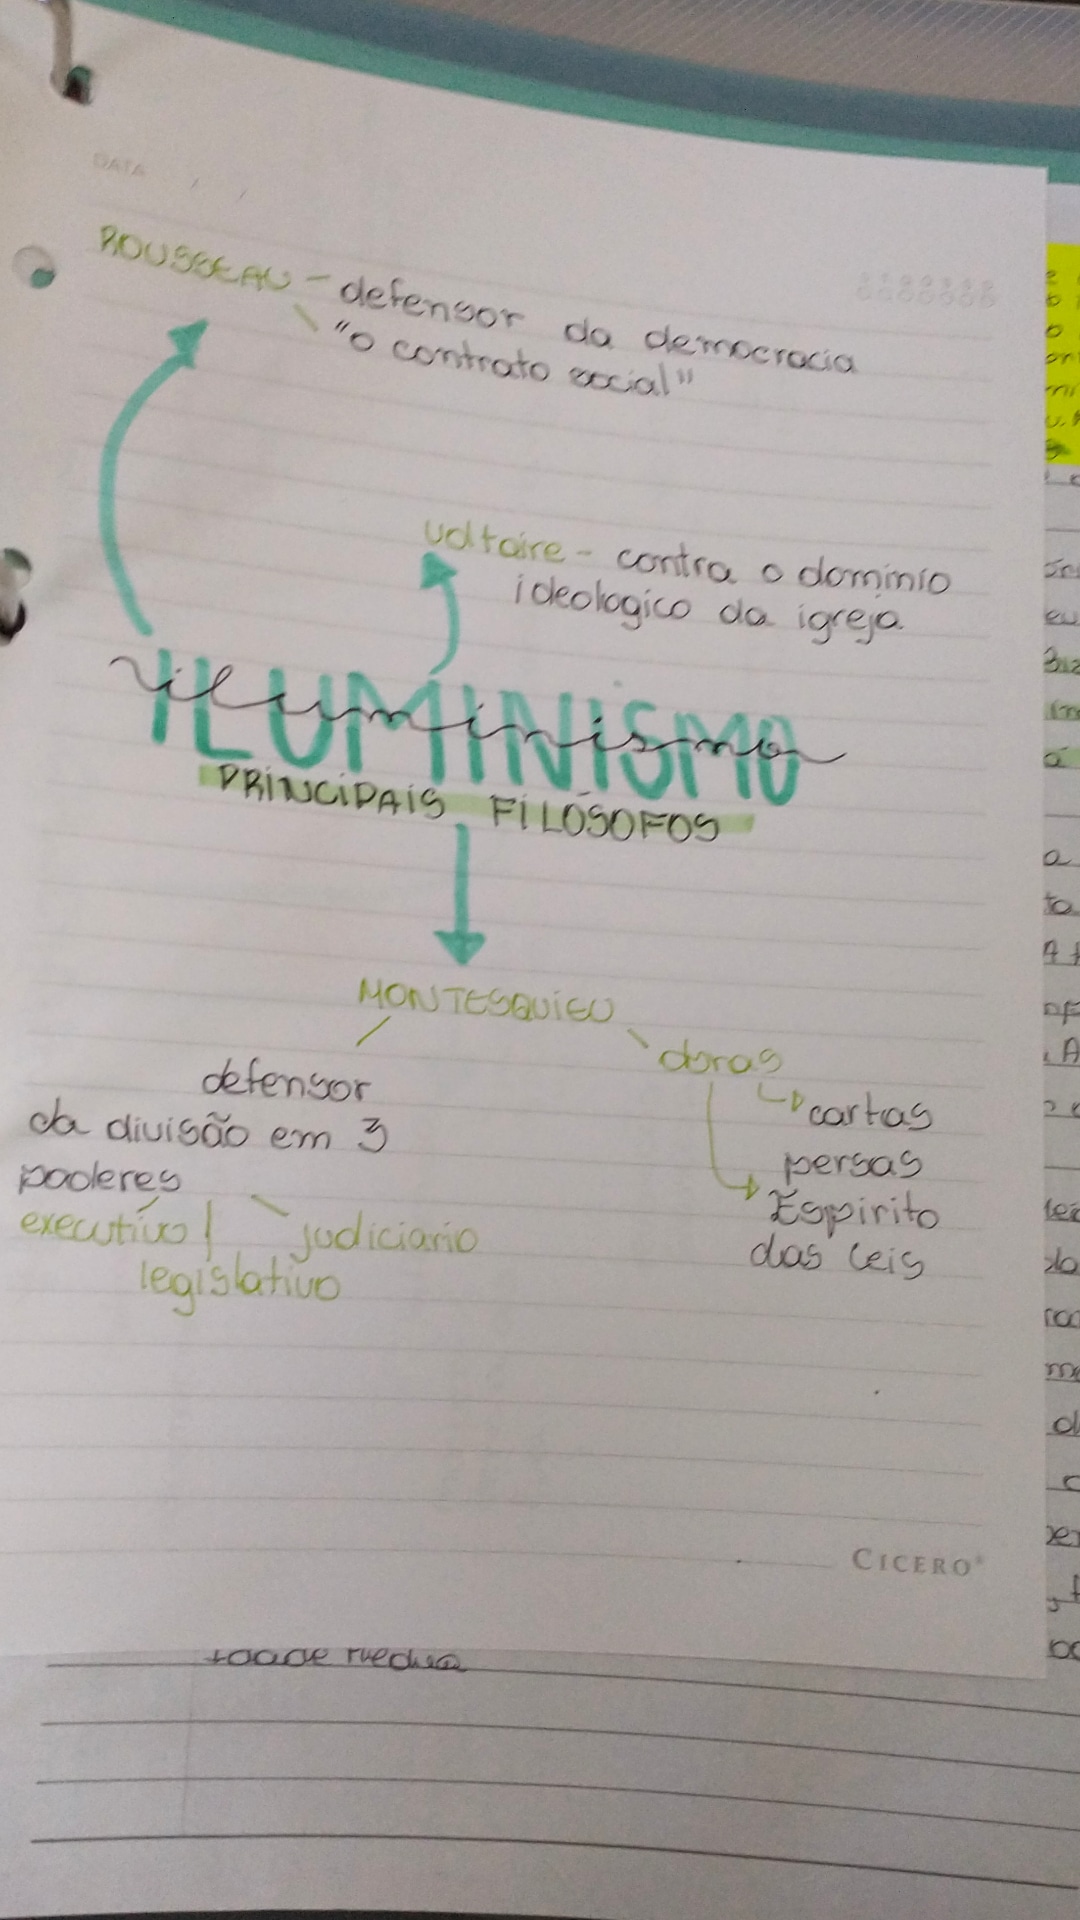 DATA / /
ROUSSEAU - defensor da democracia
"o contrato social"
voltaire - contra o dominio
ideologico da igreja
ILUMINISMO
iluminismo
PRINCIPAIS FILÓSOFOS
MONTESQUIEU
obras
defensor
da divisão em 3
poderes
executivo
judiciario
legislativo
cartas
persas
Espirito
das leis
CICERO